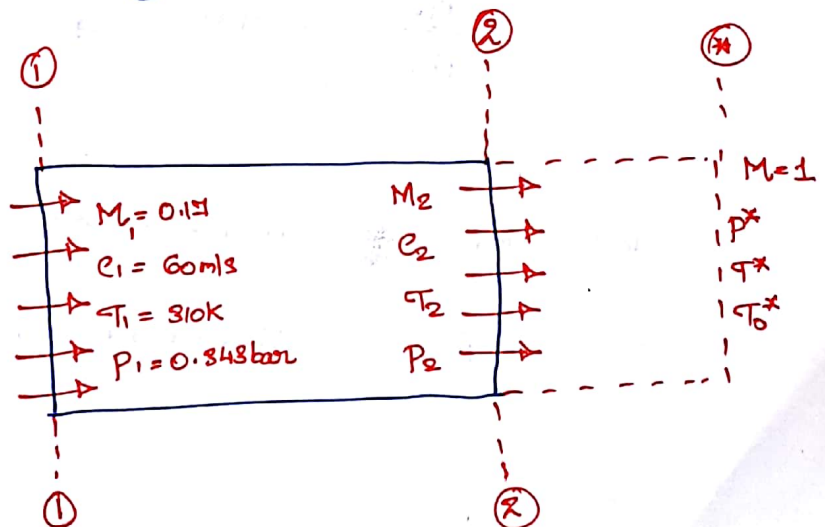 ①
②
*
M₁ = 0.17
C₁ = 60m/s
T₁ = 310K
P₁ = 0.343bar
M₂
C₂
T₂
P₂
M=1
P*
T*
T₀*
①
②